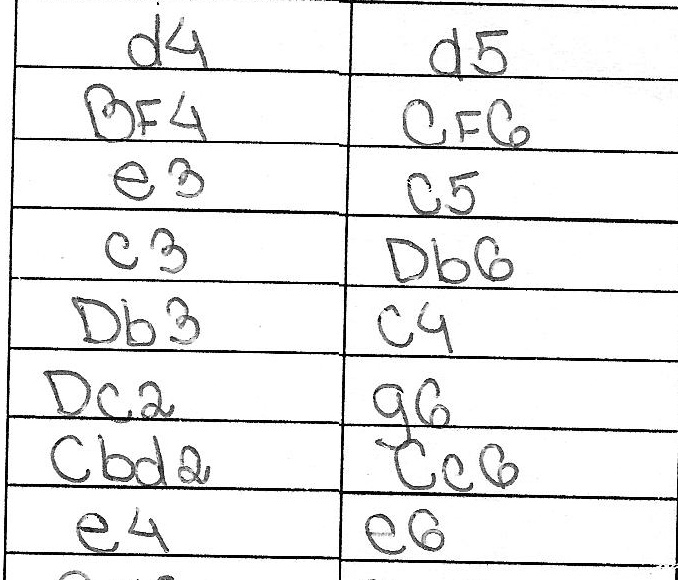 d4 d5
BF4 CF6
e3 c5
c3 Db6
Db3 c4
Dc2 g6
Cbd2 Cc6
e4 e6